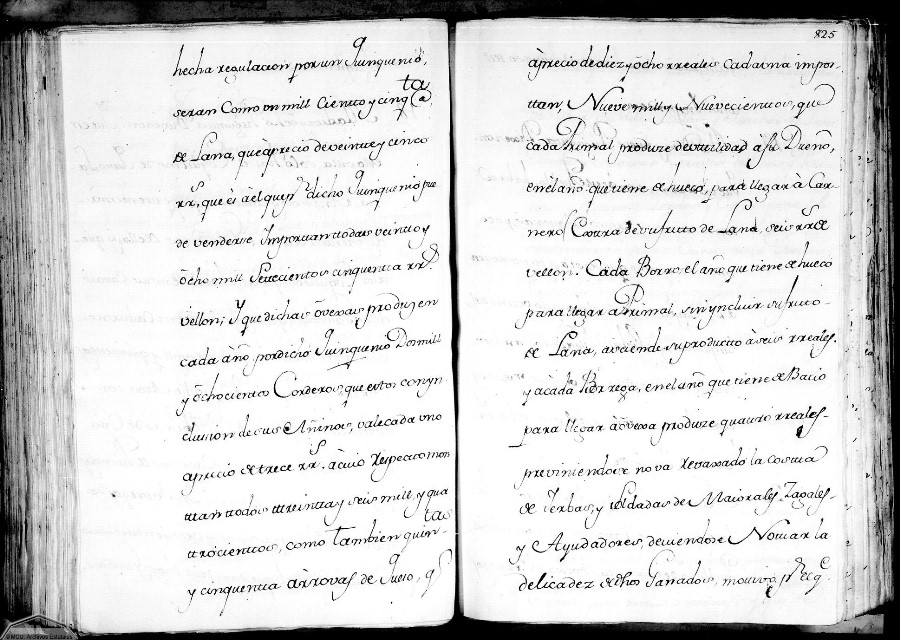 hecha regulacion por un Quinquenio,
seran Como un mill Ciento y cinq.ta @
de Lana, que aprecio de veinte y cinco
rr.s, que es àel que p.r dicho Quinquenio pue
de venderse, Ymportan ttodas veintte y
ôcho mill Settecientos cinquenta rr.s D
vellon; Y que dichas ôvexas produzen
cada año por dicho Quinquenio Dos mill
y ôchocientos Corderos, que estos con yn
clusion de sus Añinos, vale cada uno
aprecio de trece rr.s, à cuio Respecto mon
ttan ttodos ttreintta y seis mill, y qua
ttrocientos, como tambien quin.tas
y cinquenta arrovas de Queso, q.e
825
à precio de diez y ôcho rreales cada vna impor-
ttan, Nueve mill y Nuevecientos, que
cada Primal produze de vttilidad à su Dueño,
en el año que tiene de hueco, para llegar à Car-
nero, Contra de usufrutto de Lana, seis rr.s de
vellon. Cada Borro el año que tiene de hueco
para llegar a Primal, sin yncluir su fruto
de Lana, asciende su producto à seis rreales
y à cada Borrega, en el año que tiene de Bacio
para llegar à ôvexa produze quatro rreales
previniendose no va Revaxado la costta
de Yerbas, y soldadas de Maiorales, Zagales
y Ayudadores, deviendose Nottar la
delicadez de dhos Ganados, motivo p.r el q.e
©MCU. Archivos Estatales